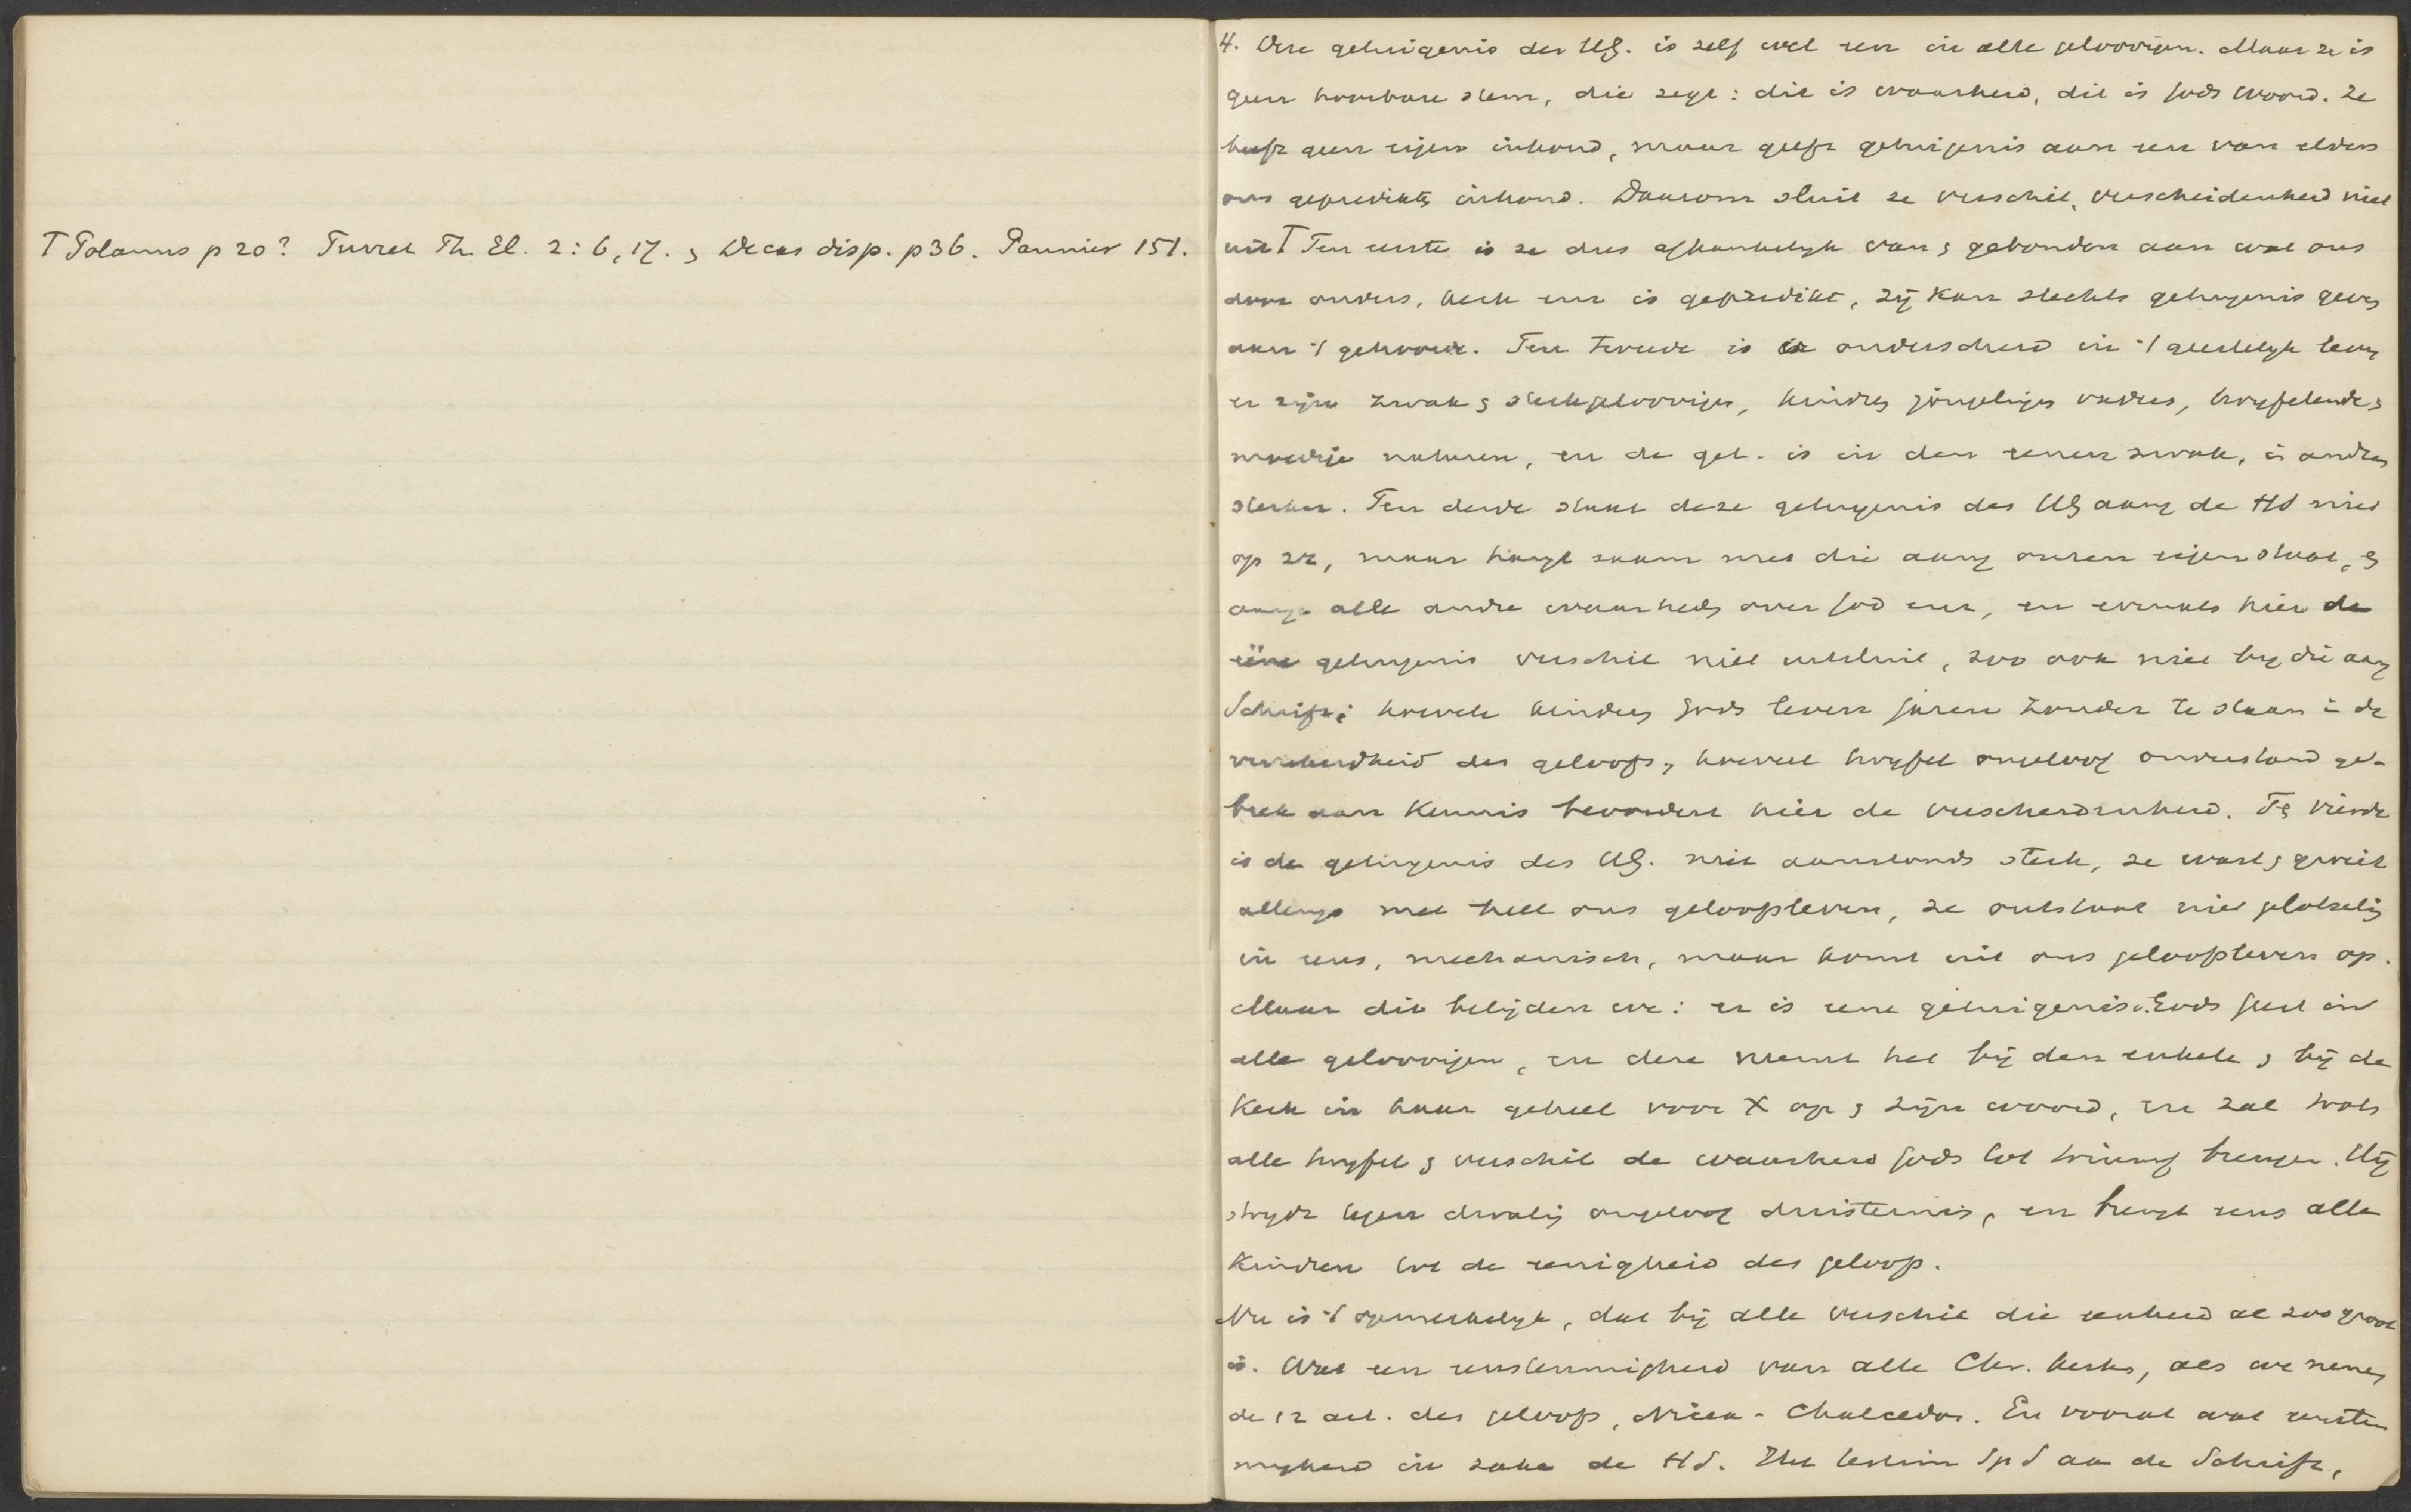 T Polanus p 20? Turret Th. El. 2: 6, 17. & Decas disp. p 36. Pannier 151.
4. Deze getuigenis des HG. is zelf wel een in alle geloovigen. Maar ze is
geen hoorbare stem, die zegt: dit is waarheid, dit is Gods woord. Ze
heeft geen eigen inhoud, maar geeft getuigenis aan een van elders
ons gepredikte inhoud. Daarom sluit ze verschil, verscheidenheid niet
uit T Ten eerste is ze dus afhankelijk van & gebonden aan wat ons
door ouders, kerk enz is gepredikt, zij kan slechts getuigenis geven
aan 't gehoorde. Ten tweede is er onderscheid in 't geestelijk leven
er zijn zwak & sterkgeloovigen, kindren jongelingen vaders, twijfelende &
moedige naturen, en de get. is in den eenen zwak, in andren
sterker. Ten derde staat deze getuigenis des HG aang de HS niet
op ze, maar hangt saam met die aang onzen eigen staat, &
aang alle andre waarheden over God enz, en evenals hier de
ééne getuigenis verschil niet uitsluit, zoo ook niet bij die aang
Schrift; hoevele kinderen Gods leven jaren zonder te staan in de
verzekerdheid des geloofs, hoeveel twijfel ongeloof onverstand ge-
brek aan kennis bevordert hier de verscheidenheid. Te vierde
is de getuigenis des HG. niet aanstonds sterk, ze wast & groeit
allengs met heel ons geloofsleven, ze ontstaat niet plotseling
in eens, mechanisch, maar komt uit ons geloofsleven op.
Maar dit belijden we: er is eene getuigenis v. Gods Geest in
alle geloovigen, en deze neemt het bij den enkele & bij de
Kerk in haar geheel voor X op & zijn woord, en zal trots
alle twijfel & verschil de waarheid Gods tot triumf brengen. Hij
strijdt tegen dwaling ongeloof duisternis, en brengt eens alle
kindren tot de eenigheid des geloofs.
Nu is 't opmerkelijk, dat bij alle verschil die eenheid al zoo groot
is. Wat een eenstemmigheid van alle Chr. kerken, als we nemen
de 12 art. des geloofs, Nicea - Chalcedon. En vooral wat eenstem
migheid in zake de HS. Het testim Sp S aan de Schrift,